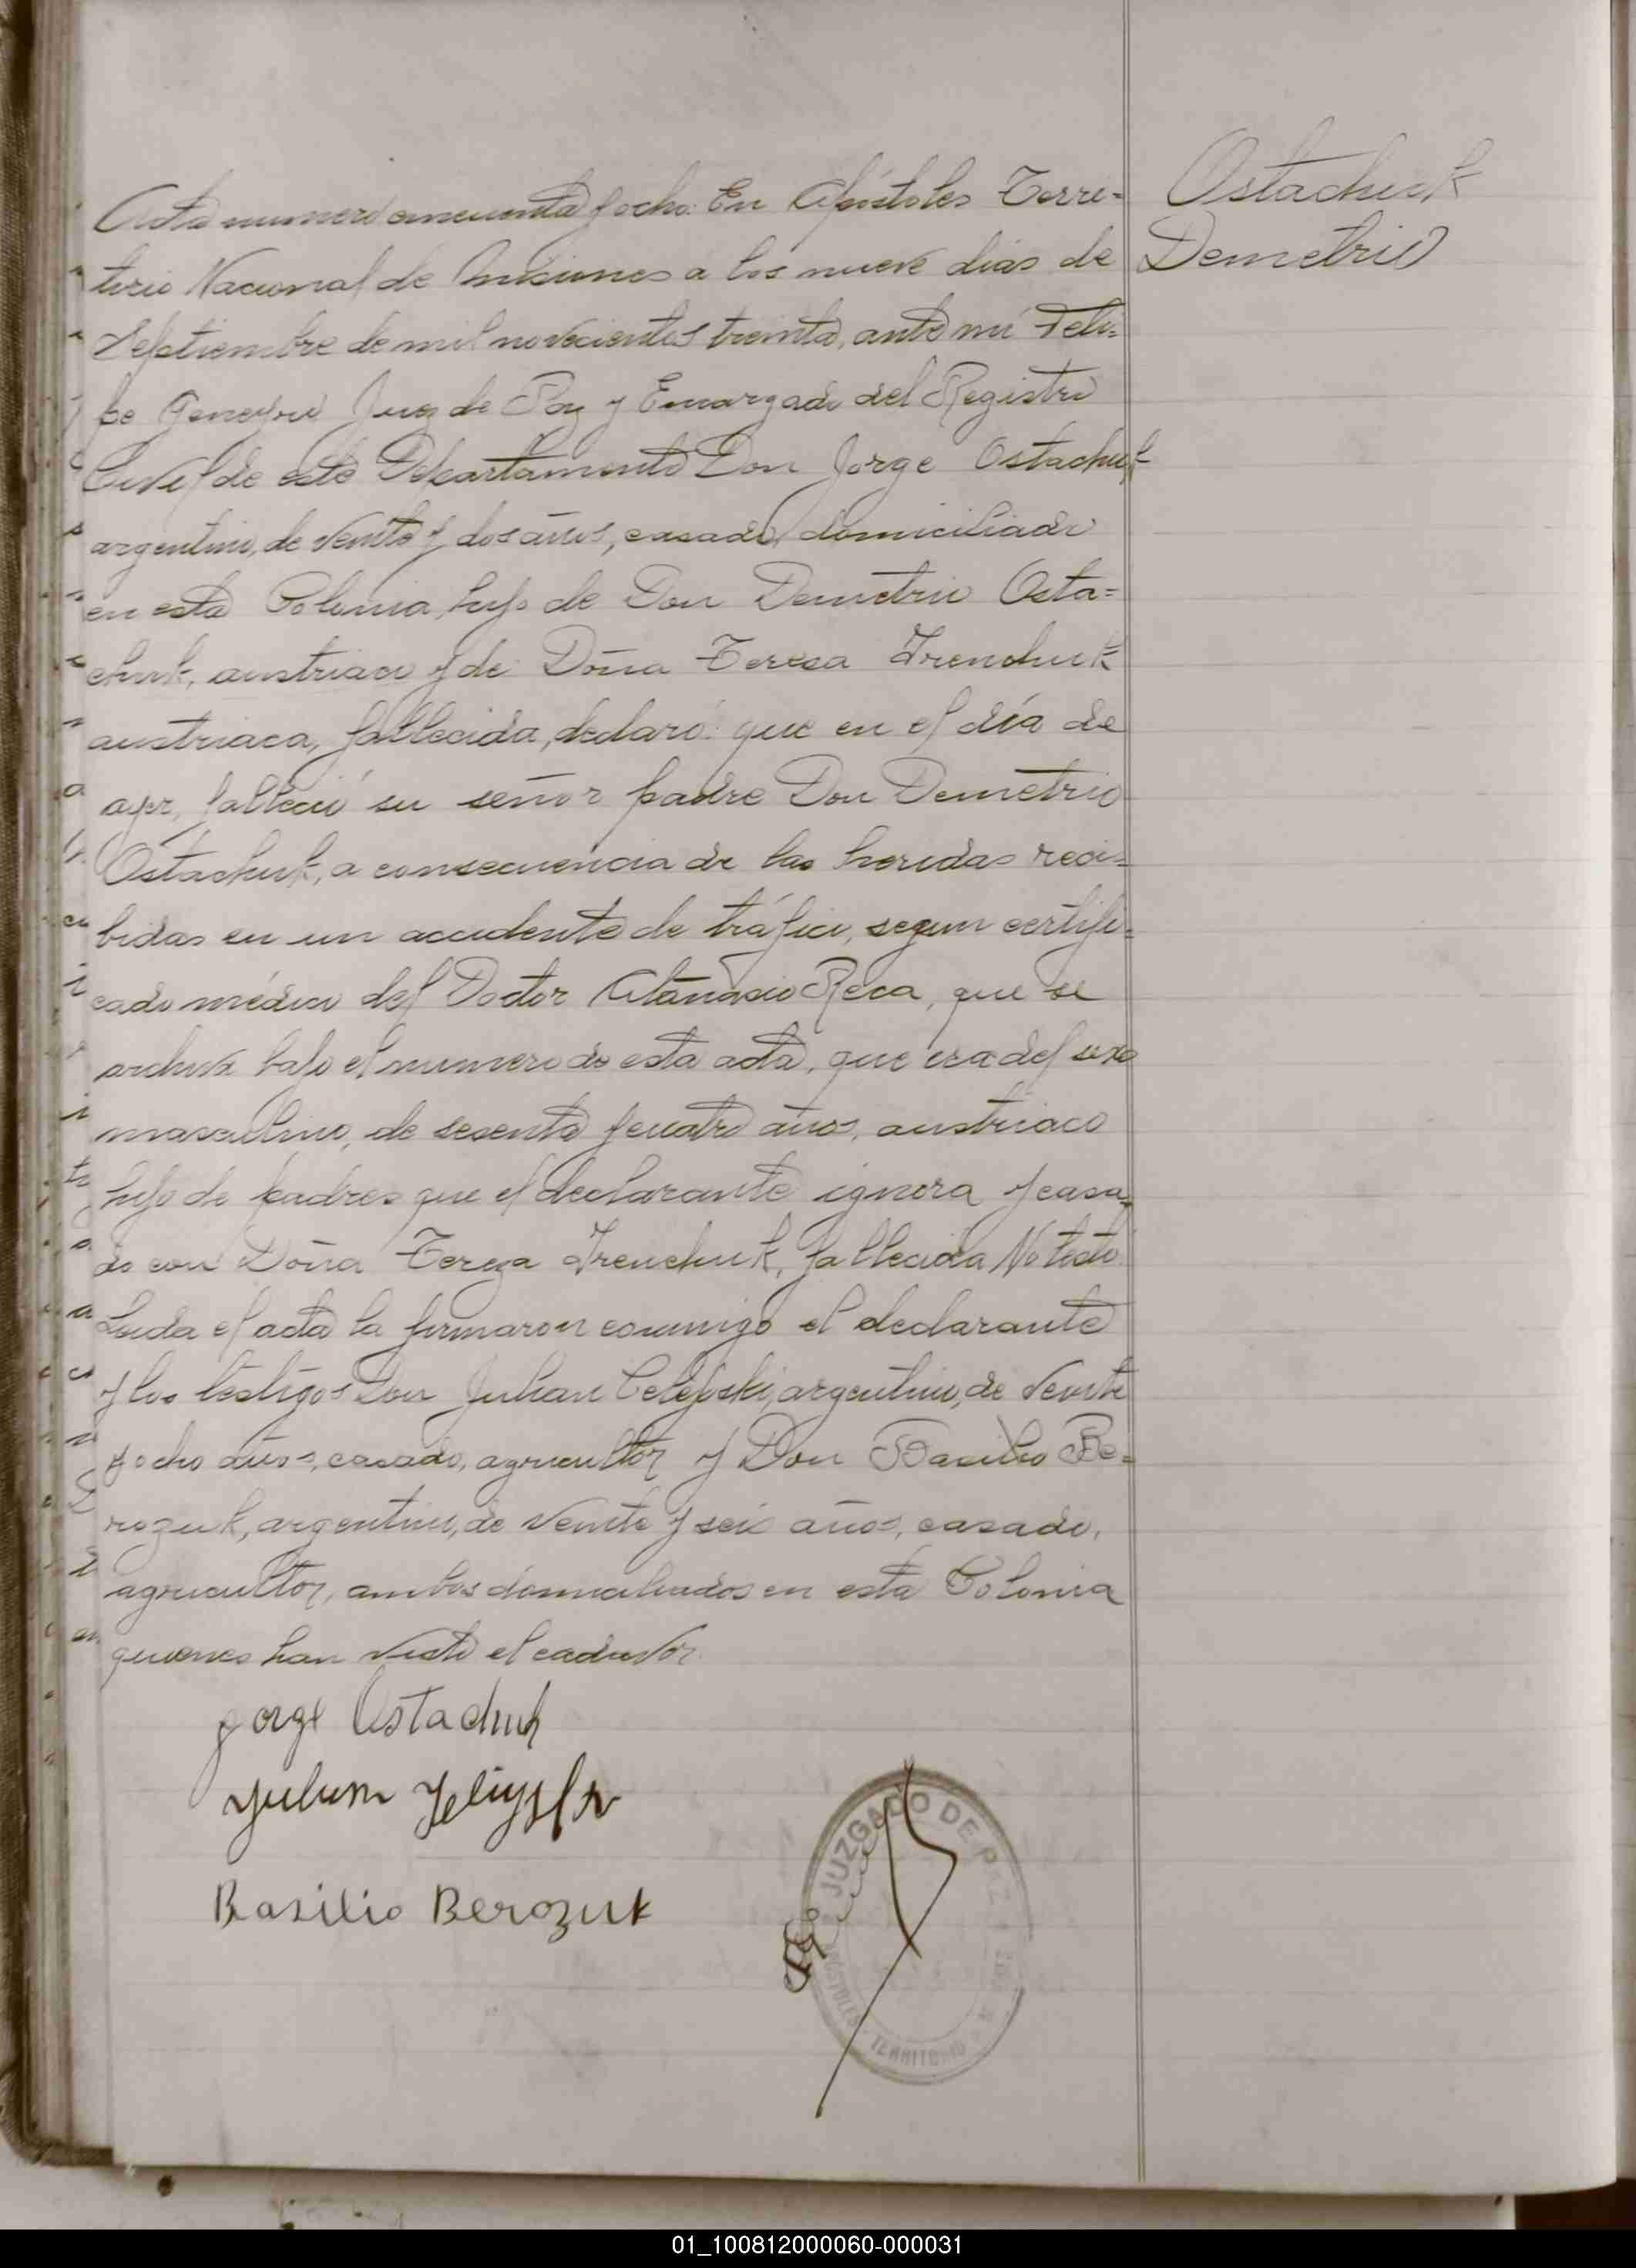 Ostachuk
Demetrio
Acta numero cincuenta y ocho: En Apóstoles Terri=
torio Nacional de Misiones a los nueve dias de
Septiembre de mil novecientos treinta, ante mi Feli=
pe Juez de Paz y Encargado del Registro
Civil de este Departamento Don Jorge Ostachuk
argentino, de veinte y dos años, casado, domiciliado
en esta Colonia, hijo de Don Demetrio Osta=
chuk, austriaco y de Doña Teresa Trenchuk
austriaca, fallecida, declaró: que en el día de
ayer, falleció su señor padre Don Demetrio
Ostachuk, a consecuencia de las heridas reci=
bidas en un accidente de tráfico, segun certifi=
cado médico del Doctor Atanasio Reca, que se
archiva bajo el numero de esta acta, que era del sexo
masculino, de sesenta y cuatro años, austriaco
hijo de padres que el declarante ignora y casa=
do con Doña Tereza Trenchuk, fallecida No testó.
Leida el acta la firmaron conmigo el declarante
y los testigos Don Julian argentino, de veinte
y ocho años, casado, agricultor y Don Basilio Be=
rozuk, argentino, de veinte y seis años, casado,
agricultor, ambos domiciliados en esta Colonia
quienes han visto el cadaver.
Jorge Ostachuk
Basilio Berozuk
JUZGADO DE PAZ
TERRITORIO
01_100812000060-000031